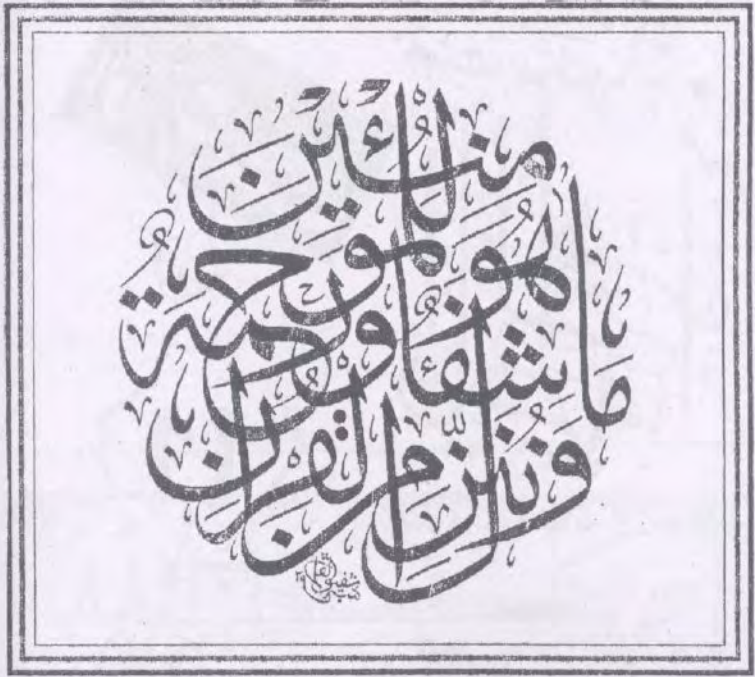 وننزّل من القرآن
ما هو شفاء ورحمة
للمؤمنين